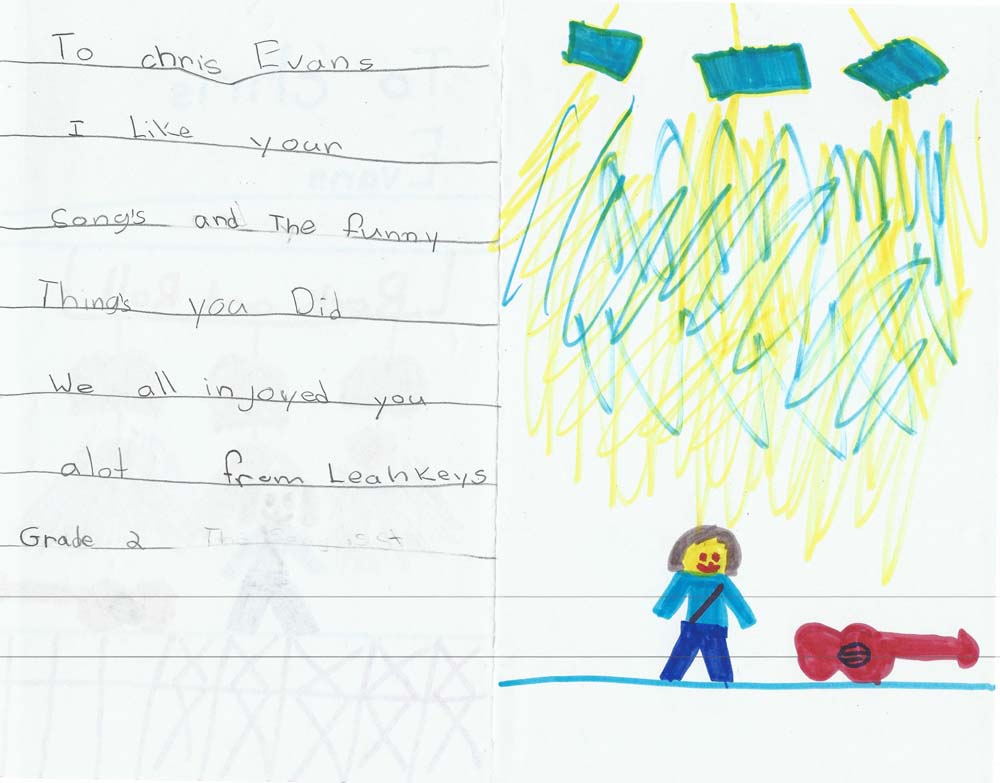 To chris Evans
I Like your
Song's and The funny
Thing's you Did
We all injoyed you
alot from Leahkeys
Grade 2